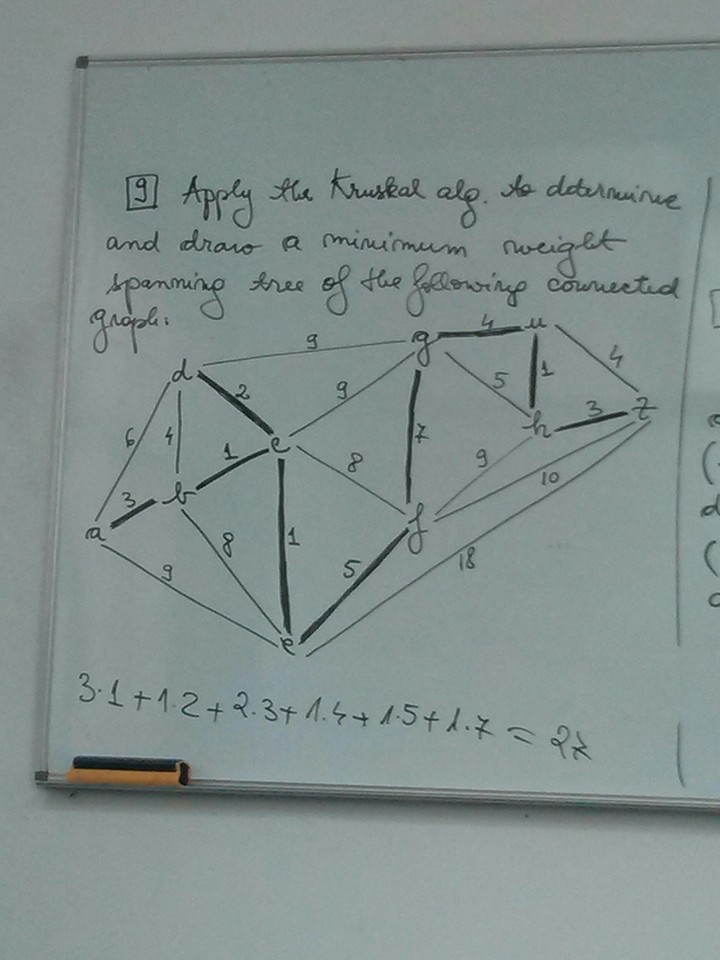 9 Apply the Kruskal alg. to determine
and draw a minimum weight
spanning tree of the following connected
graph:
g 4 u
9
d
4
2 9 5 1
3 z
6 4 h
c
1 7
8 9
3 b 10
a f
8 1
5 18
9
e
3·1+1·2+2·3+1·4+1·5+1·7=27